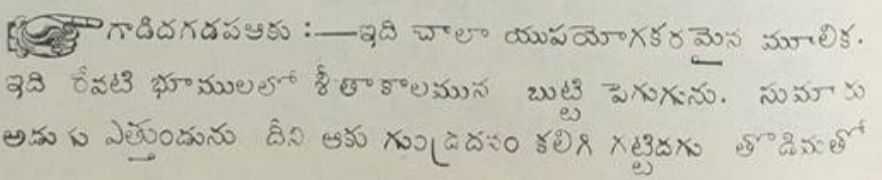 గాడిదగడపఆకు :—ఇది చాలా యుపయోగకరమైన మూలిక.
ఇది రేవటి భూములలో శీతాకాలమున బుట్టి పెరుగును. సుమారు
అడుగు ఎత్తుండును దీని ఆకు గుండ్రదనం కలిగి గట్టిదగు తొడిమతో